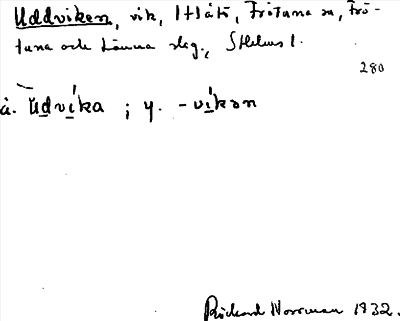 Uddviken, vik, Frötuna sn, Frö-
tuna och Länna skg., Sthlms l.
280
å. Údvíka ; y. -víkən
Rickard Norrman 1932.